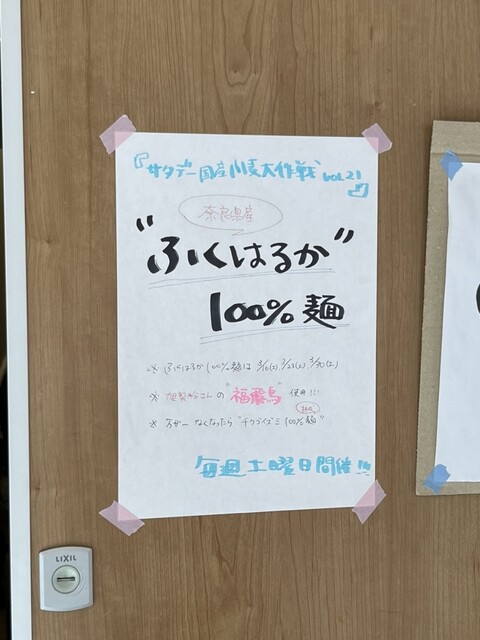 『サタデー国産小麦大作戦 vol.21』
奈良県産
"ふくはるか"
100%麺
※ ふくはるか100%麺は 3/16(土), 3/23(土), 3/30(土)
※ 旭製粉さんの "福飛鳥" 使用!!!
※ 万が一なくなったら "チクゴイズミ100%麺"
毎週土曜日開催!!!
LIXIL